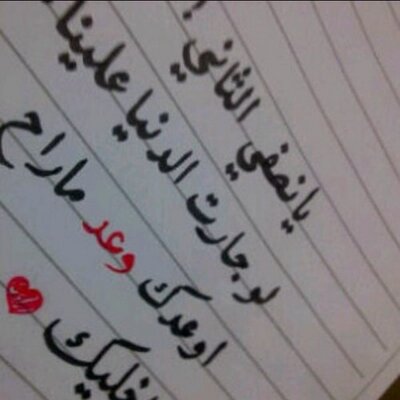 يانصفي الثاني !
لو جارت الدنيا علينا
اوعدك وعد ماراح